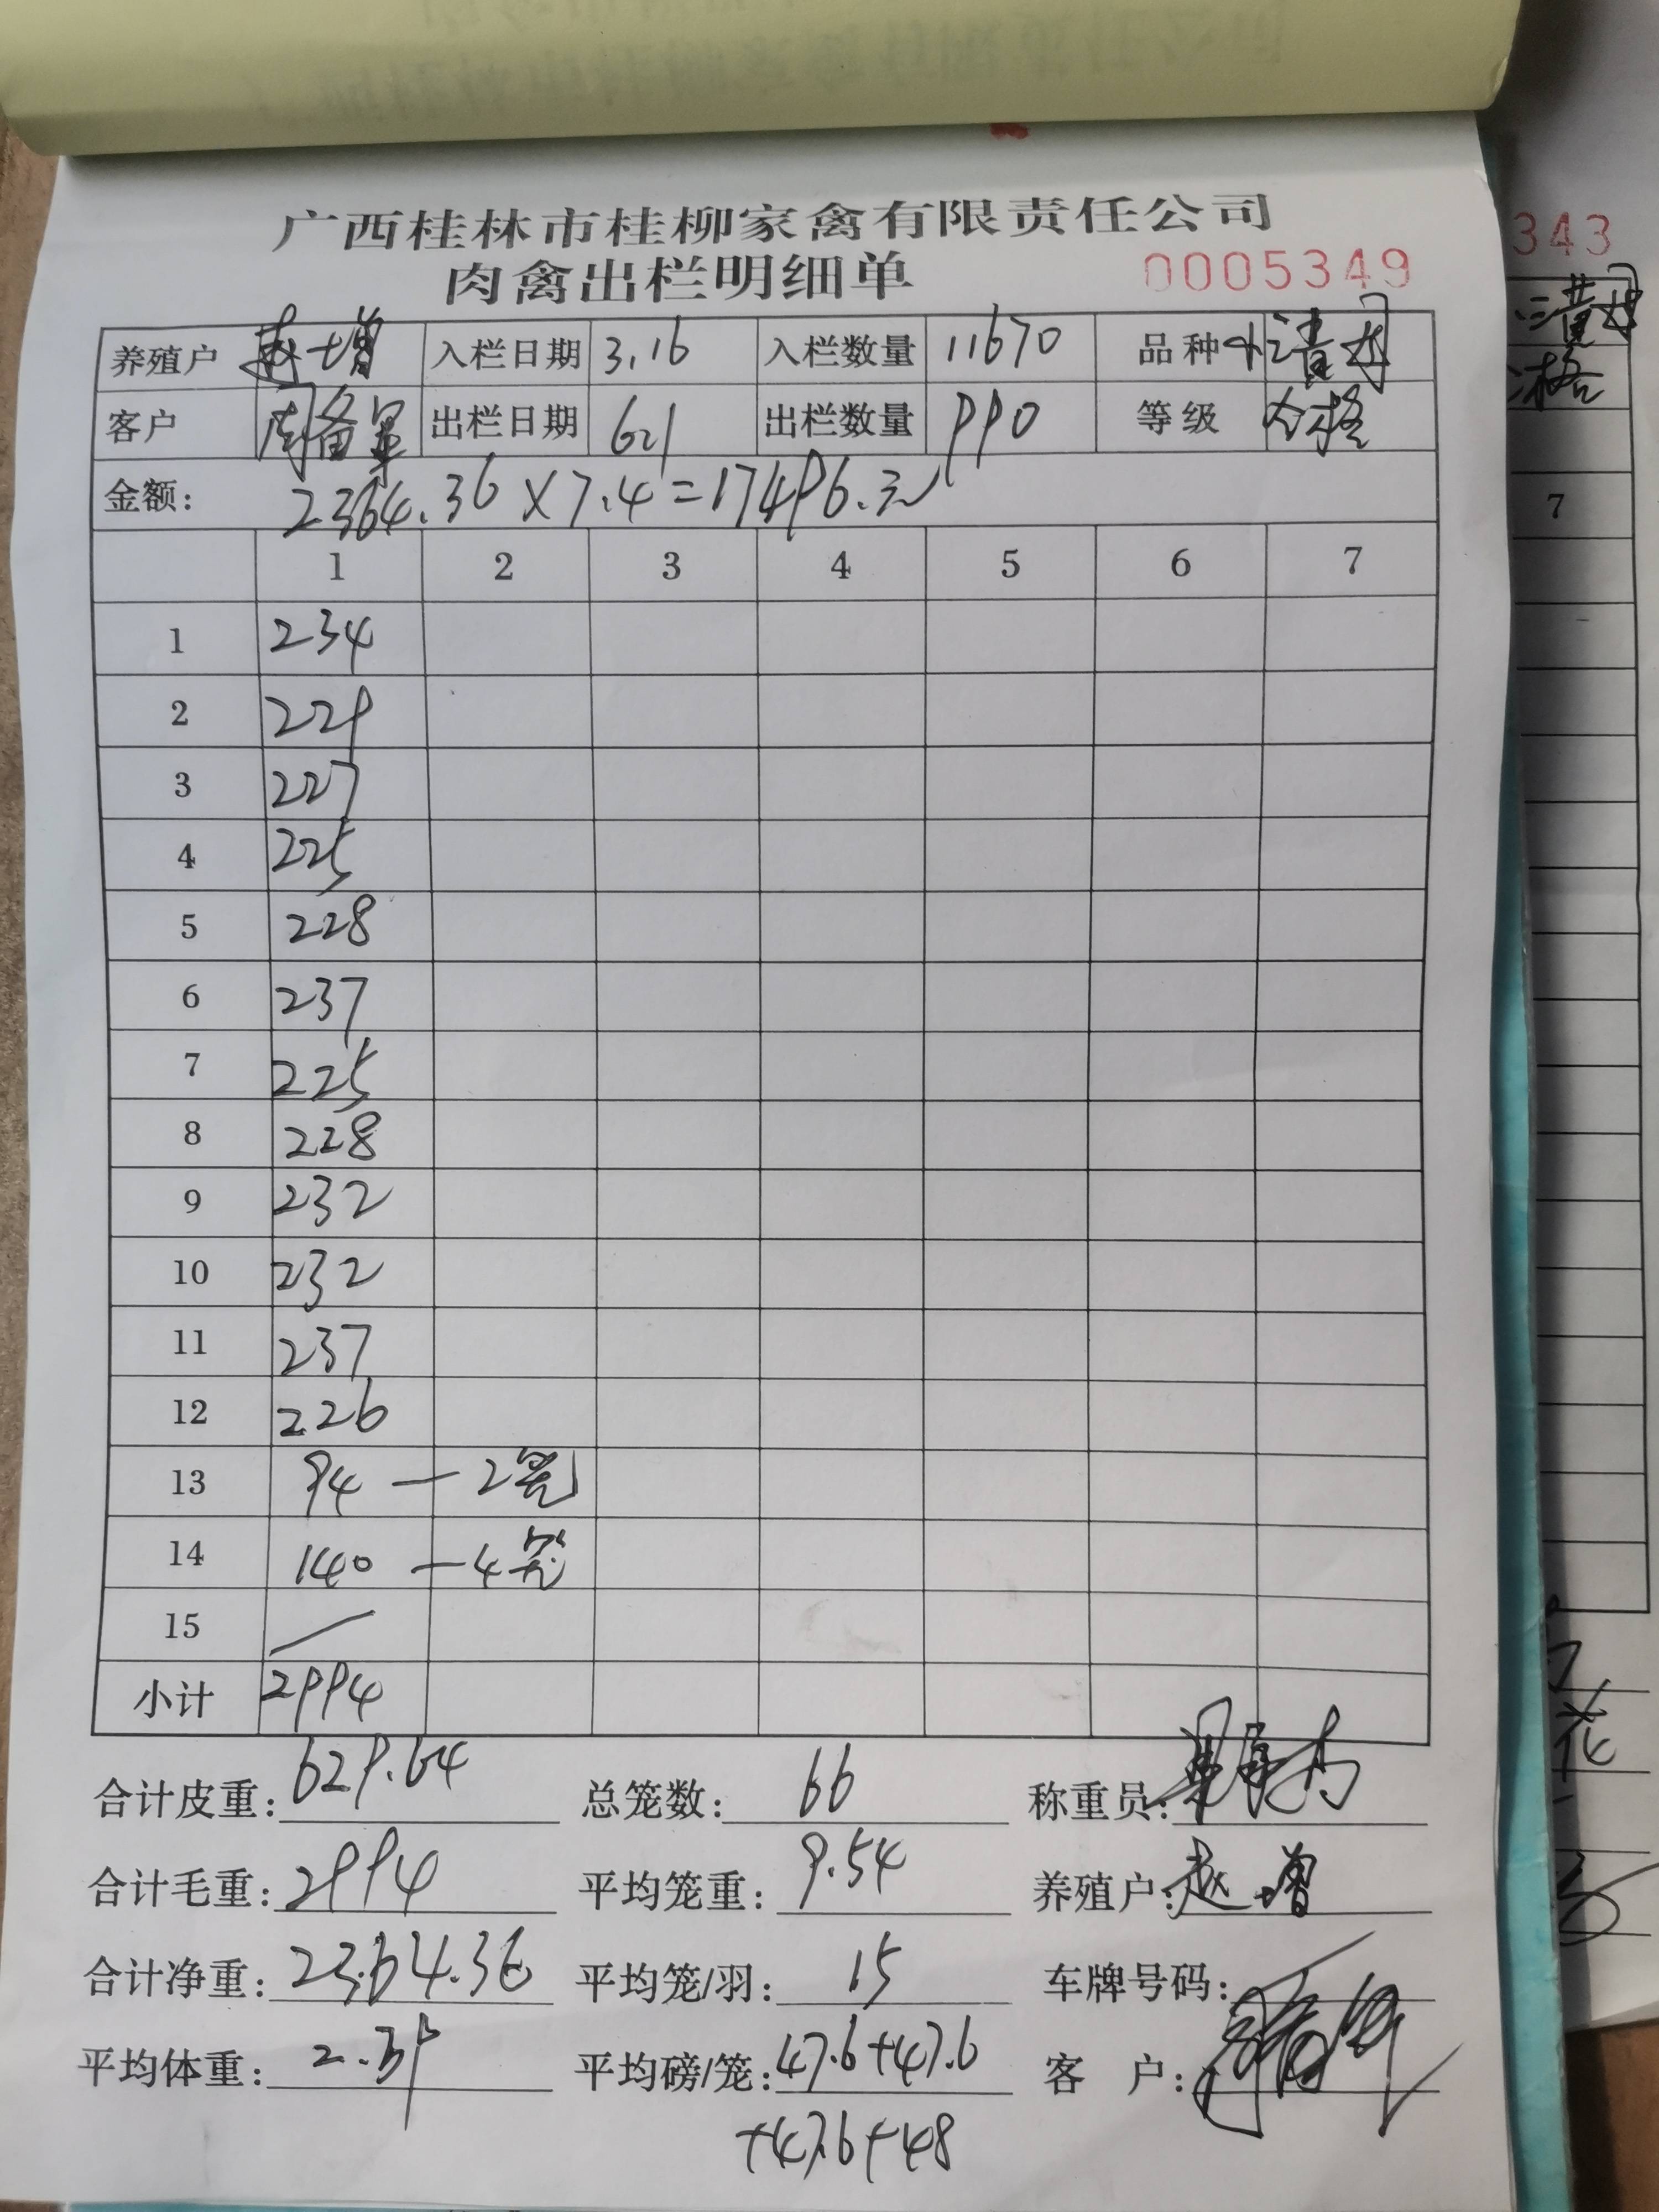 广西桂林市桂柳家禽有限责任公司
肉禽出栏明细单 0005349
养殖户 赵増 入栏日期 3.16 入栏数量 11670 品种
客户 出栏日期 621 出栏数量 990 等级 合格
金额: 2364.36×7.4=17496.元
1 2 3 4 5 6 7
1 234
2 229
3 227
4 225
5 228
6 237
7 225
8 228
9 232
10 232
11 237
12 226
13 94 — 2笼
14 140 — 4笼
15 /
小计 2994
合计皮重: 629.64 总笼数: 66 称重员:
合计毛重: 2994 平均笼重: 9.54 养殖户: 赵増
合计净重: 2364.36 平均笼/羽: 15 车牌号码:
平均体重: 2.39 平均磅/笼: 47.6+47.6 客 户:
+47.6+48
343
7